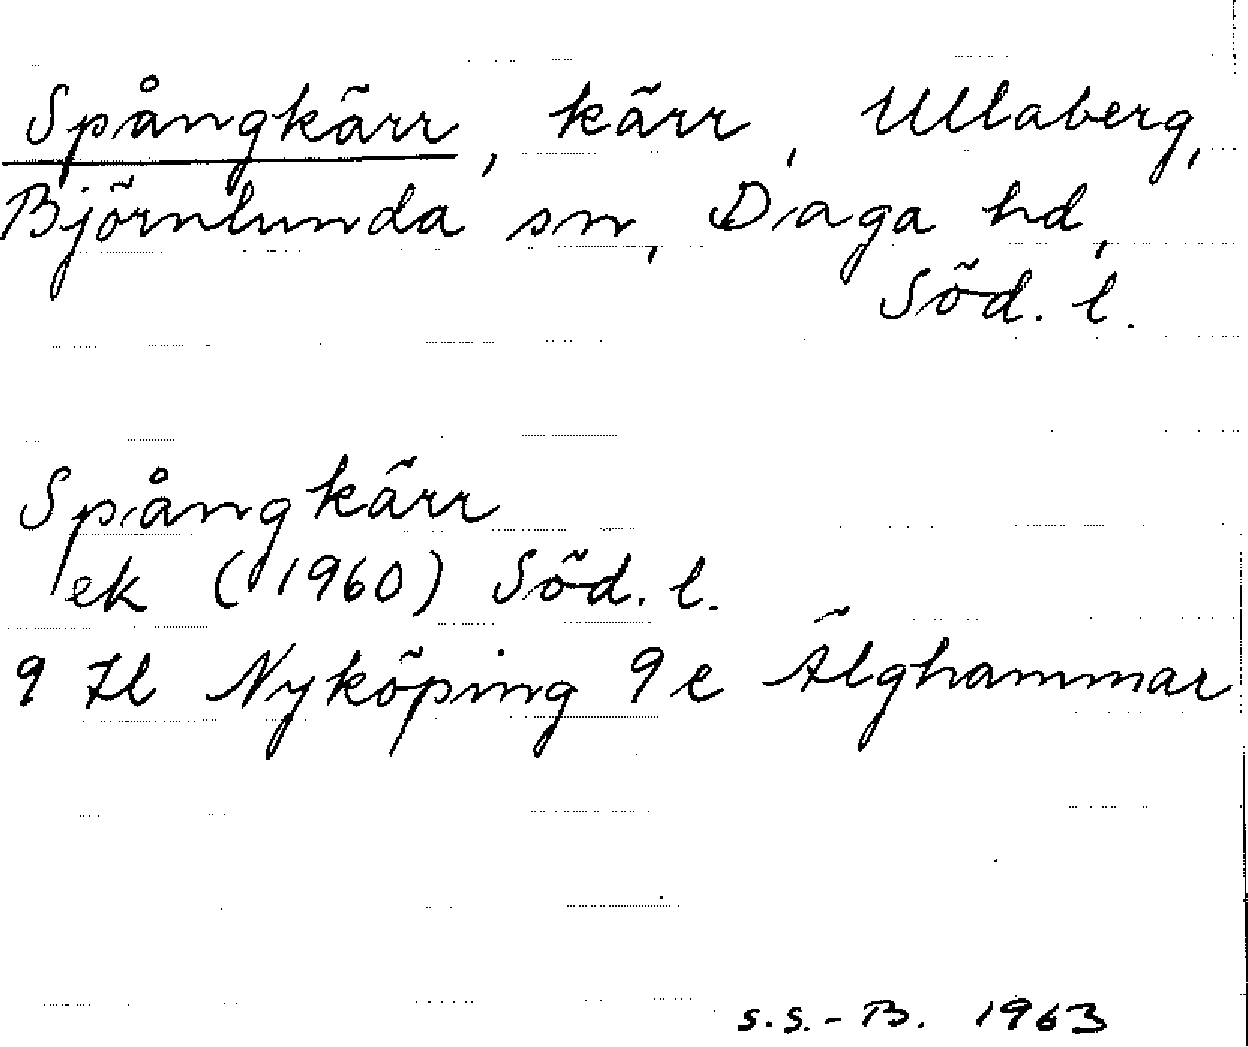 Spångkärr, kärr, Ullaberg,
Björnlunda sn, Daga hd,
Söd. l.
Spångkärr
ek (1960) Söd. l.
9 H Nyköping 9 e Älghammar
s.s.-B. 1963